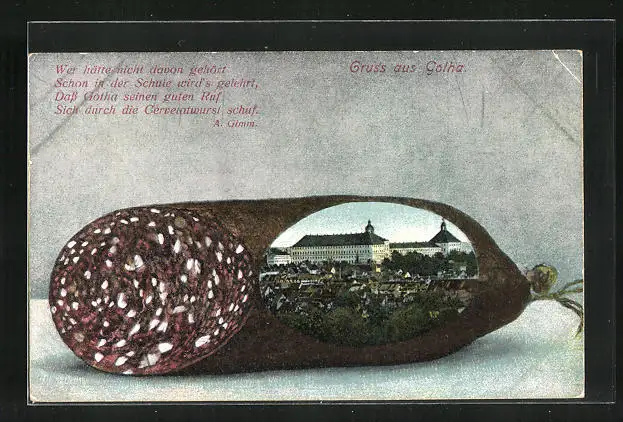 Wer hätte nicht davon gehört
Schon in der Schule wird's gelehrt,
Daß Gotha seinen guten Ruf
Sich durch die Cervelatwurst schuf.
A. Gimm.
Gruss aus Gotha.